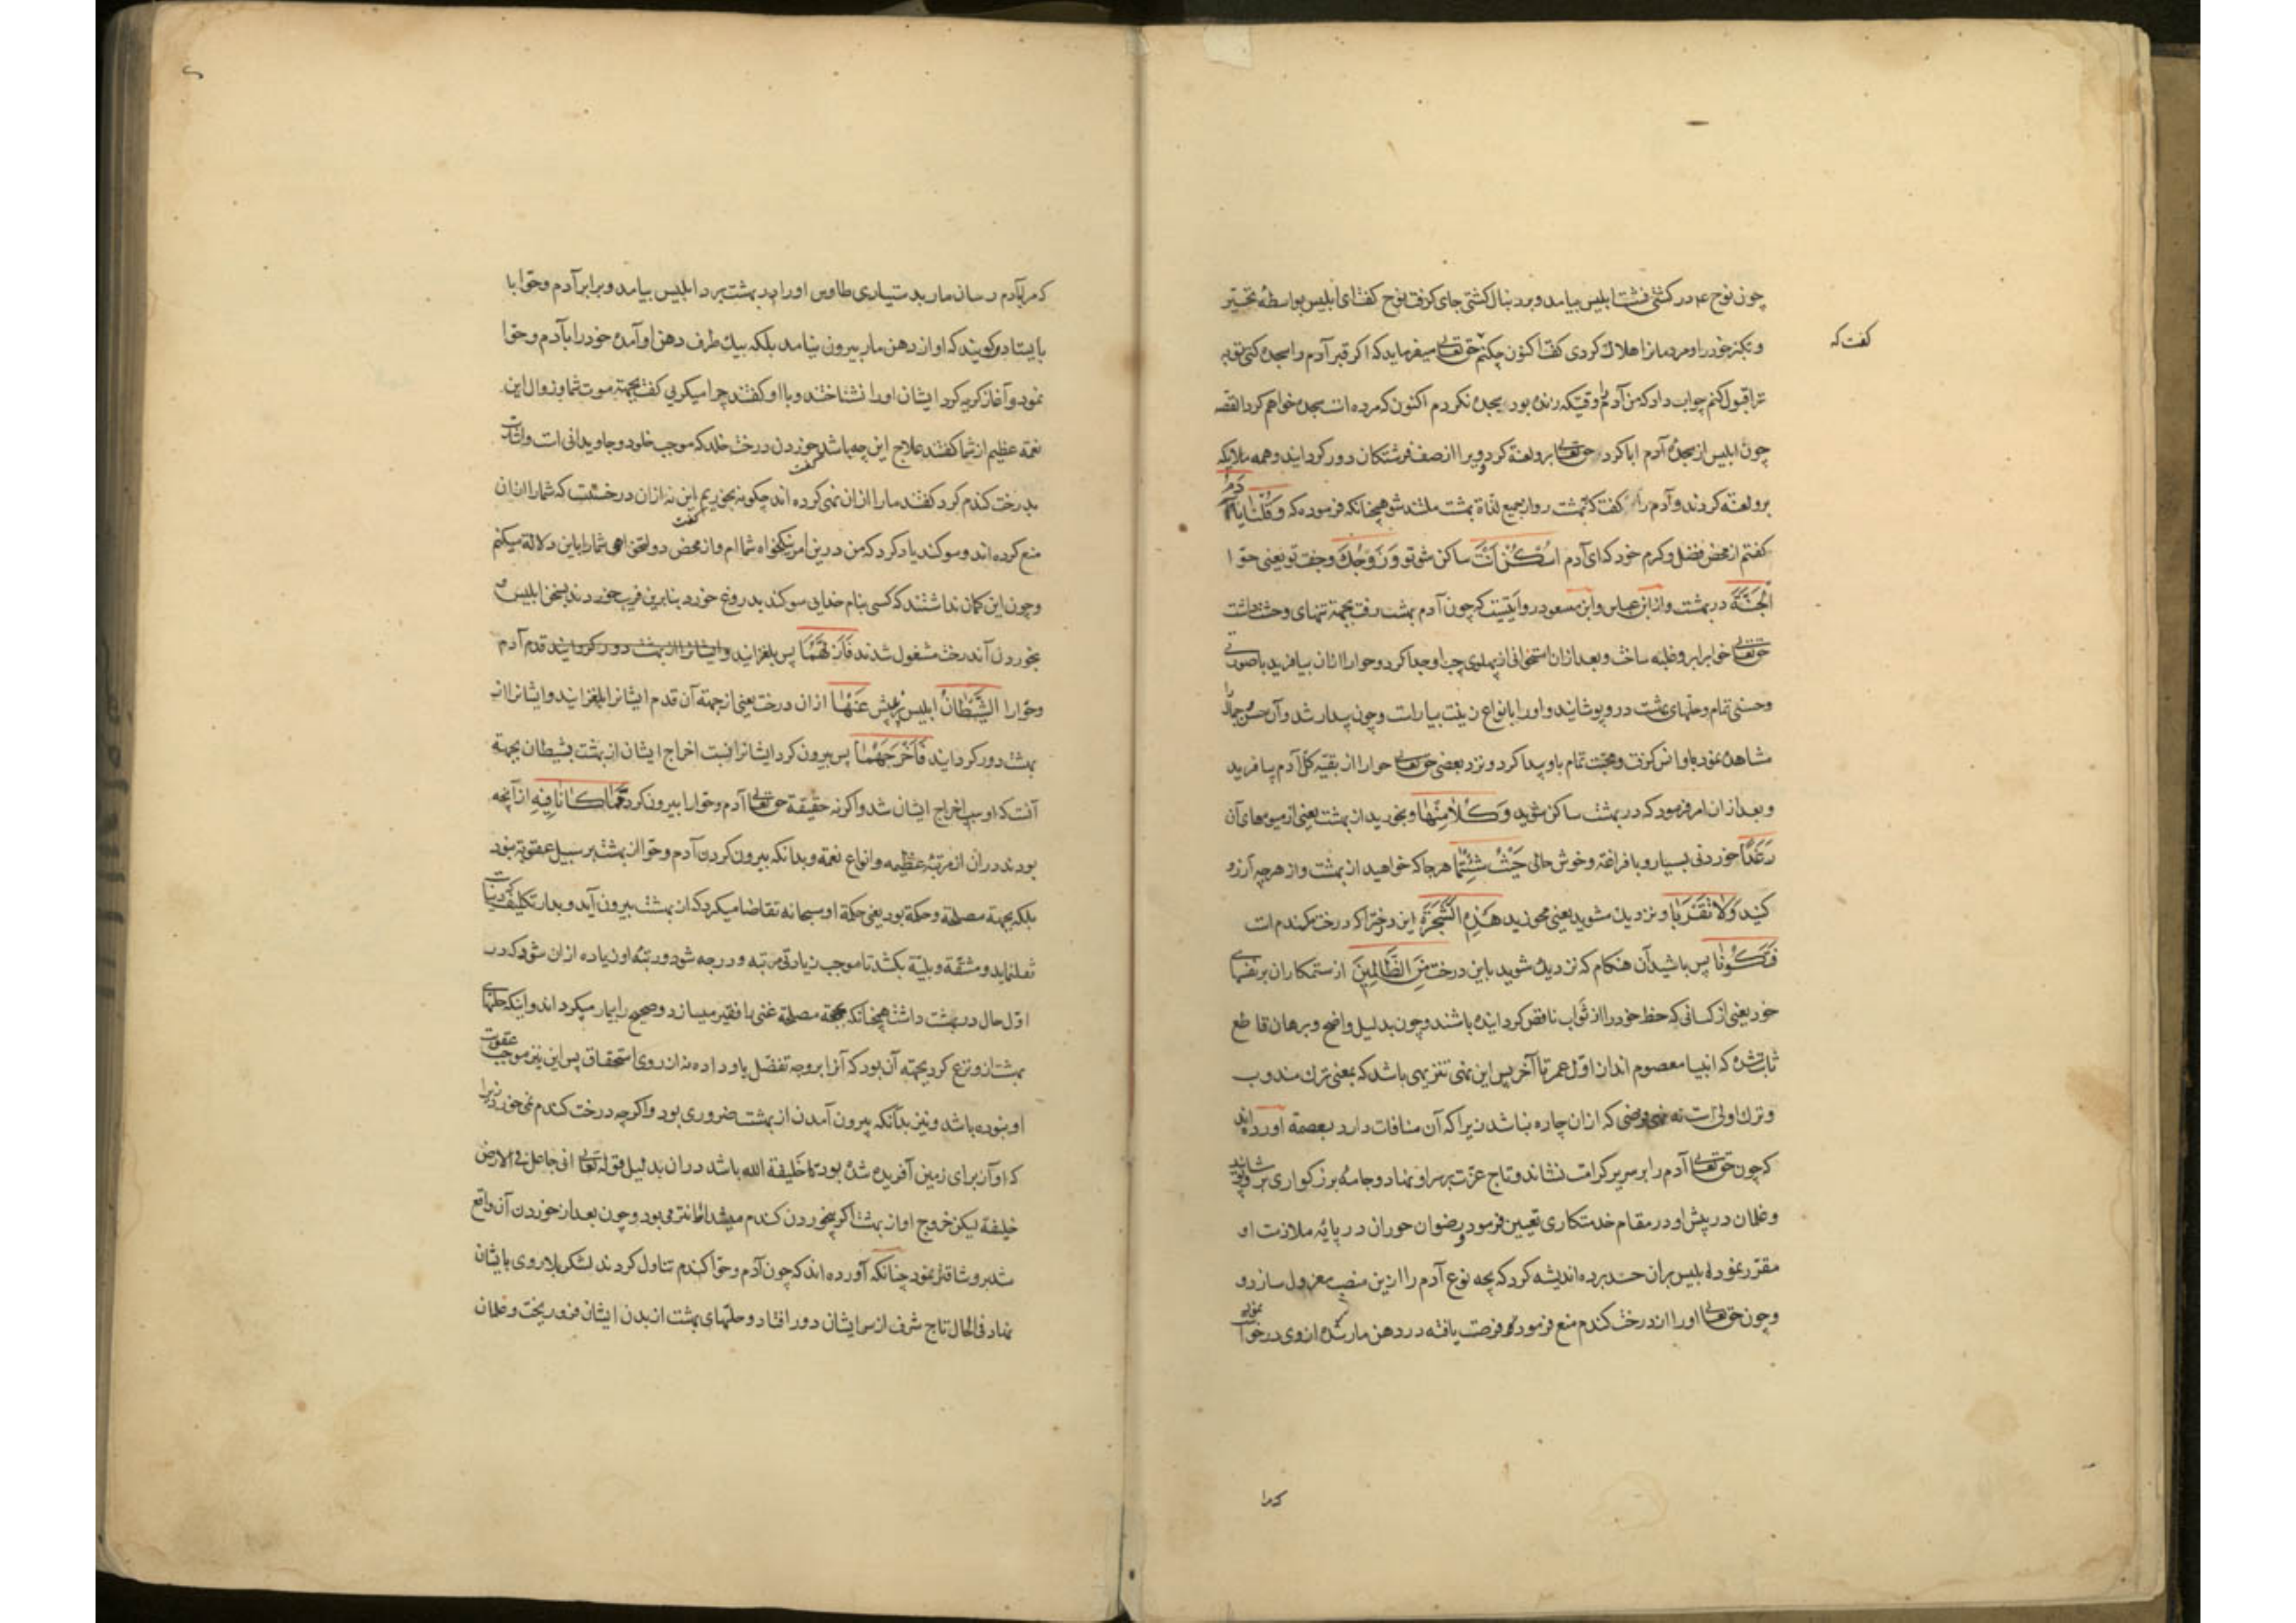 چون نوح ع در کشتی نشست ابلیس بیامد و بر دنبال کشتی جای گرفت نوح گفت ای ابلیس بواسطهٔ تجبّر
و تکبّر خود را و مردمان را هلاک کردی گفت اکنون چکنم حق تعالی میفرماید که اگر قبر آدم را سجده کنی توبه
گفت که
ترا قبول کنم جواب داد که من آدم را وقتیکه زنده بود سجده نکردم اکنون که مرده است سجده خواهم کرد القصه
چون ابلیس از سجدهٔ آدم ابا کرد حق تعالی برو لعنة کرد و ویرا از صف فرشتگان دور گردانید و همه ملایکه
برو لعنة کردند و آدم را گفت که ببهشت رو از جمیع لذاة بهشت ملتذ شو همچنانکه فرموده که وَقُلْنَا یَا آدَمُ
گفتم از محض فضل و کرم خود که ای آدم اسْکُنْ اَنْتَ ساکن شو تو وَزَوْجُکَ و جفت تو یعنی حوّا
الْجَنَّةَ در بهشت و از ابن عباس و ابن مسعود روایتست که چون آدم ببهشت رفت بجهة تنهای وحشت داشت
حق تعالی خواب برو غلبه ساخت و بعد از ان استخوانی از پهلوی چپ او جدا کرد و حوا را ازان بیافرید با صورتی
و حسنی تمام و حلهای بهشت درو پوشانید و او را بانواع زینت بیاراست و چون بیدار شد و آن حسن و جمال را
مشاهده نمود باو انس گرفت و محبت تمام باو پیدا کرد و نزد بعضی حق تعالی حوا را از بقیّه گل آدم بیافرید
و بعد از ان امر فرمود که در بهشت ساکن شوید وَکُلَا مِنْهَا و بخورید از بهشت یعنی از میوهای آن
رَغَدًا خوردنی بسیار و با فراغة و خوش حالی حَیْثُ شِئْتُمَا هر جا که خواهید از بهشت و از هر چه آرزو
کنید وَلَا تَقْرَبَا و نزدیک مشوید یعنی مخورید هَذِهِ الشَّجَرَةَ این درخترا که درخت گندم است
فَتَکُونَا پس باشید آن هنگام که نزدیک شوید باین درخت مِنَ الظَّالِمِینَ از ستمکاران بر نفسهای
خود یعنی از کسانی که حظ خود را از ثواب ناقص گردانیده باشند و چون بدلیل واضح و برهان قاطع
ثابت شده که انبیا معصوم اند از اول عمر تا آخر پس این نهی تنزیهی باشد که بمعنی ترک مندوب
و ترک اولی است نه که ازان چاره نباشد زیرا که آن منافات دارد بعصمة آورده اند
که چون حق تعالی آدم را بر سریر کرامت نشاند و تاج عزت بر سر او نهاد و جامهٔ بزرگواری برو پوشانید
و غلمان در پیش او در مقام خدمتکاری تعیین فرمود و رضوان حوران در پایهٔ ملازمت او
مقرّر نمود ابلیس بر ان حسد برده اندیشه کرد که بچه نوع آدم را ازین منصب معزول سازد و
و چون حق تعالی او را از درخت گندم منع فرمود فرصت یافته در دهن مار شده از وی درخواست نمود
که مرا
که مرا بآدم رسان مار بدستیاری طاوس او را در بهشت برد ابلیس بیامد و برابر آدم و حوّا با
بایستاد و گویند که او از دهن مار بیرون نیامد بلکه بیک طرف دهن او آمده خود را بآدم و حوا
نمود و آغاز گریه کرد ایشان او را نشناختند و با او گفتند چرا میگریی گفت بجهة موت شما و زوال این
نعمة عظیم از شما گفتند علاج این چه باشد گفت خوردن درخت خلد که موجب خلود و جاویدانی است و اشارت
بدرخت گندم کرد گفتند ما را ازان نهی کرده اند چگونه بخوریم گفت این نه ازان درختست که شما را ازان
منع کرده اند و سوگند یاد کرد که من درین امر نیکخواه شما ام و از محض دولتخواهی شما را باین دلالة میکنم
و چون این گمان نداشتند که کسی بنام خدای سوگند بدروغ خورد بنابرین فریب خوردند بسخن ابلیس و
بخوردن آندرخت مشغول شدند فَاَزَلَّهُمَا پس بلغزانید و ایشانرا از بهشت دور گردانید قدم آدم
و حوّا را الشَّیْطَانُ ابلیس عَنْهَا ازان درخت یعنی از جهة آن قدم ایشانرا بلغزانید و ایشانرا از
بهشت دور گردانید فَاَخْرَجَهُمَا پس بیرون کرد ایشانرا نسبت اخراج ایشان از بهشت بشیطان بجهة
آنست که او سبب اخراج ایشان شد و اگر نه حقیقة حق تعالی آدم و حوا را بیرون کرد مِمَّا کَانَا فِیهِ از آنچه
بودند در ان از مرتبهٔ عظیمه و انواع نعمة و بدانکه بیرون کردن آدم و حوا از بهشت بر سبیل عقوبة نبود
بلکه بجهة مصلحة و حکمة بود یعنی حکمة او سبحانه تقاضا میکرد که از بهشت بیرون آید و بدار تکلیف که دنیاست
نقل نماید و مشقّة و بلیّة بکشد تا موجب زیادتی مرتبه و درجه شود و رتبهٔ او زیاده ازان شود که در
اول حال در بهشت داشت همچنانکه بجهة مصلحة غنی را فقیر میسازد و صحیح را بیمار میگرداند و اینکه حلهای
بهشت ازو نزع کرد بجهة آن بود که آنرا بر وجه تفضّل باو داده نه از روی استحقاق پس این نیز موجب عقوبت
او نبوده باشد و نیز بدانکه بیرون آمدن از بهشت ضروری بود و اگر چه درخت گندم نمی خورد زیرا
که او از برای زمین آفریده شده بود تا خلیفة الله باشد در ان بدلیل قوله تعالی انی جاعل فی الارض
خلیفة لیکن خروج او از بهشت اگر بخوردن گندم نمیشد بود و چون بعد از خوردن آن واقع
شد بر و شاق نمود چنانکه آورده اند که چون آدم و حوّا گندم تناول کردند لشکر بلا روی بایشان
نهاد فی الحال تاج شرف از سر ایشان دور افتاد و حلهای بهشت از بدن ایشان فرو ریخت و غلمان